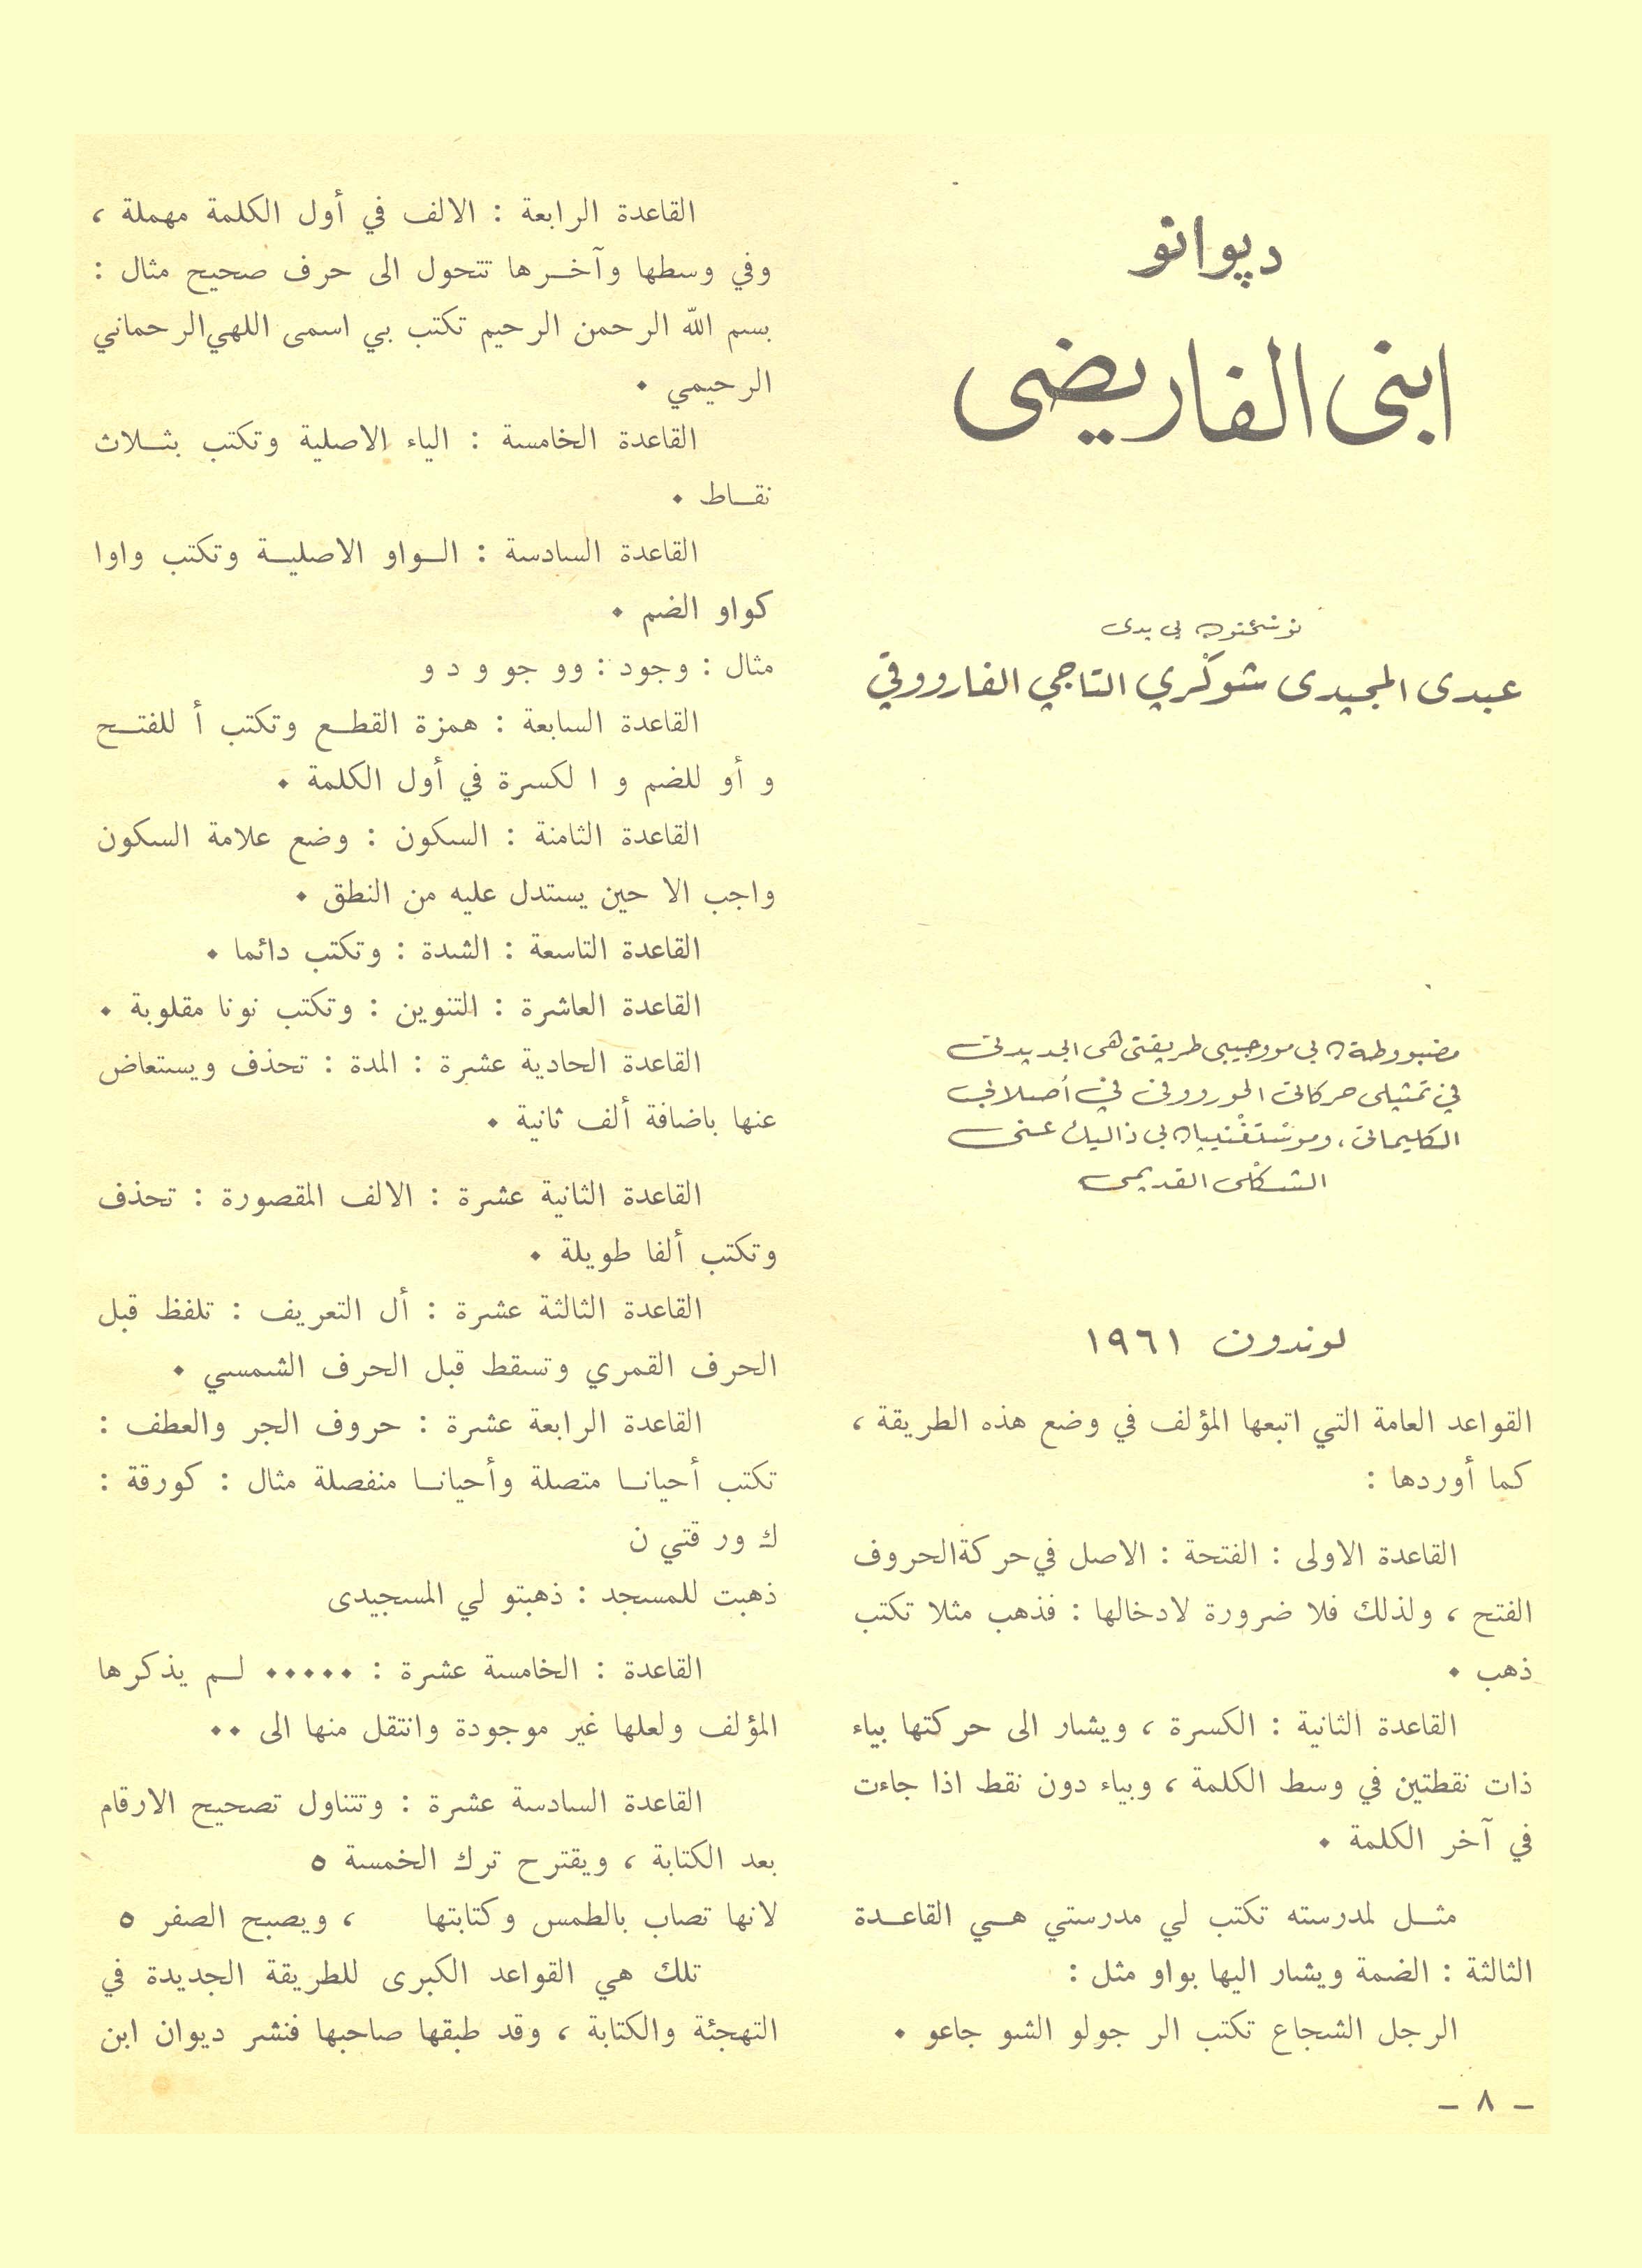 ديوانو
ابنى الفاريضى
نوسْختون بي يدى
عبدى المجيدى شوكْري التاجي الفارووقي
مضبووطة ن بي مووجيبى طريقتى هى الجديدتى
في تمثيلى حركاتى الحورووفى في أصلابى
الكليماتى ، وموسْتغْنييان بي ذاليك عنى
الشكْلى القديمى
لوندون ١٩٦١
القواعد العامة التي اتبعها المؤلف في وضع هذه الطريقة ،
كما أوردها :
القاعدة الاولى : الفتحة : الاصل في حركة الحروف
الفتح ، ولذلك فلا ضرورة لادخالها : فذهب مثلا تكتب
ذهب ٠
القاعدة الثانية : الكسرة ، ويشار الى حركتها بياء
ذات نقطتين في وسط الكلمة ، وبياء دون نقط اذا جاءت
في آخر الكلمة ٠
مثــل لمدرسته تكتب لي مدرستي هــي القاعــدة
الثالثة : الضمة ويشار اليها بواو مثل :
الرجل الشجاع تكتب الر جولو الشو جاعو ٠
القاعدة الرابعة : الالف في أول الكلمة مهملة ،
وفي وسطها وآخــرها تتحول الى حرف صحيح مثال :
بسم الله الرحمن الرحيم تكتب بي اسمى اللهي الرحماني
الرحيمي ٠
القاعدة الخامسة : الياء الاصلية وتكتب بثــلاث
نقــاط ٠
القاعدة السادسة : الــواو الاصليــة وتكتب واوا
كواو الضم ٠
مثال : وجود : وو جو و د و
القاعدة السابعة : همزة القطــع وتكتب أ للفتــح
و أو للضم و ا لكسرة في أول الكلمة ٠
القاعدة الثامنة : السكون : وضع علامة السكون
واجب الا حين يستدل عليه من النطق ٠
القاعدة التاسعة : الشدة : وتكتب دائما ٠
القاعدة العاشرة : التنوين : وتكتب نونا مقلوبة ٠
القاعدة الحادية عشرة : المدة : تحذف ويستعاض
عنها باضافة ألف ثانية ٠
القاعدة الثانية عشرة : الالف المقصورة : تحذف
وتكتب ألفا طويلة ٠
القاعدة الثالثة عشرة : أل التعريف : تلفظ قبل
الحرف القمري وتسقط قبل الحرف الشمسي ٠
القاعدة الرابعة عشرة : حروف الجر والعطف :
تكتب أحيانــا متصلة وأحيانــا منفصلة مثال : كورقة :
ك ور قتي ن
ذهبت للمسجد : ذهبتو لي المسجيدى
القاعدة : الخامسة عشرة : ٠٠٠٠٠ لــم يذكرها
المؤلف ولعلها غير موجودة وانتقل منها الى ٠٠
القاعدة السادسة عشرة : وتتناول تصحيح الارقام
بعد الكتابة ، ويقترح ترك الخمسة ٥
لانها تصاب بالطمس وكتابتها ، ويصبح الصفر ٥
تلك هي القواعد الكبرى للطريقة الجديدة في
التهجئة والكتابة ، وقد طبقها صاحبها فنشر ديوان ابن
– ٨ –